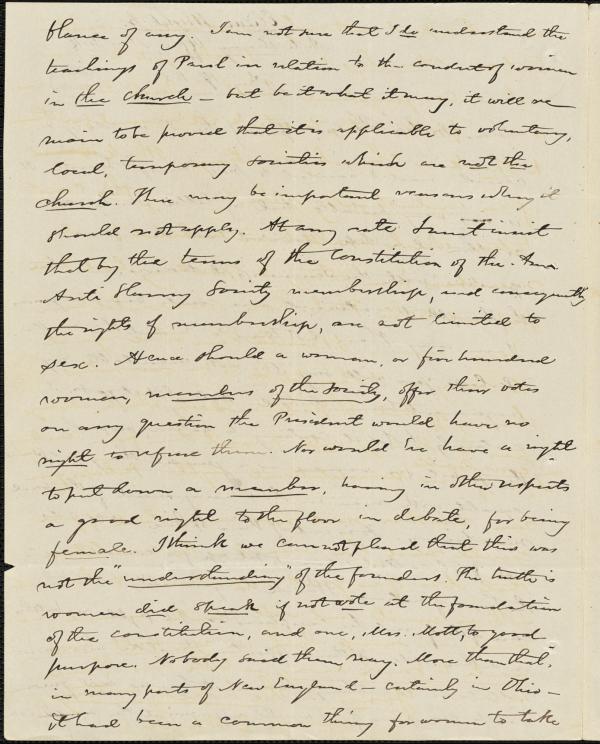 blance of any. I am not sure that I do understand the
teachings of Paul in relation to the conduct of women
in the church – but be it what it may, it will re
main to be proved that it is applicable to voluntary,
local, temporary societies which are not the
church. There may be important reasons why it
should not apply. At any rate I must insist
that by the terms of the Constitution of the Am.
Anti Slavery Society membership, and consequently
the rights of membership, are not limited to
sex. Hence should a woman, or five hundred
women, members of the society, offer their votes
on any question the President would have no
right to refuse them. Nor would he have a right
to put down a member, having in other respects
a good right to the floor in debate, for being
female. I think we cannot plead that this was
not the "understanding" of the founders. The truth is
women did speak if not vote at the foundation
of the constitution, and one, Mrs. Mott, to good
purpose. Nobody said them nay. More than that,
in many parts of New England – certainly in Ohio –
it had been a common thing for women to take